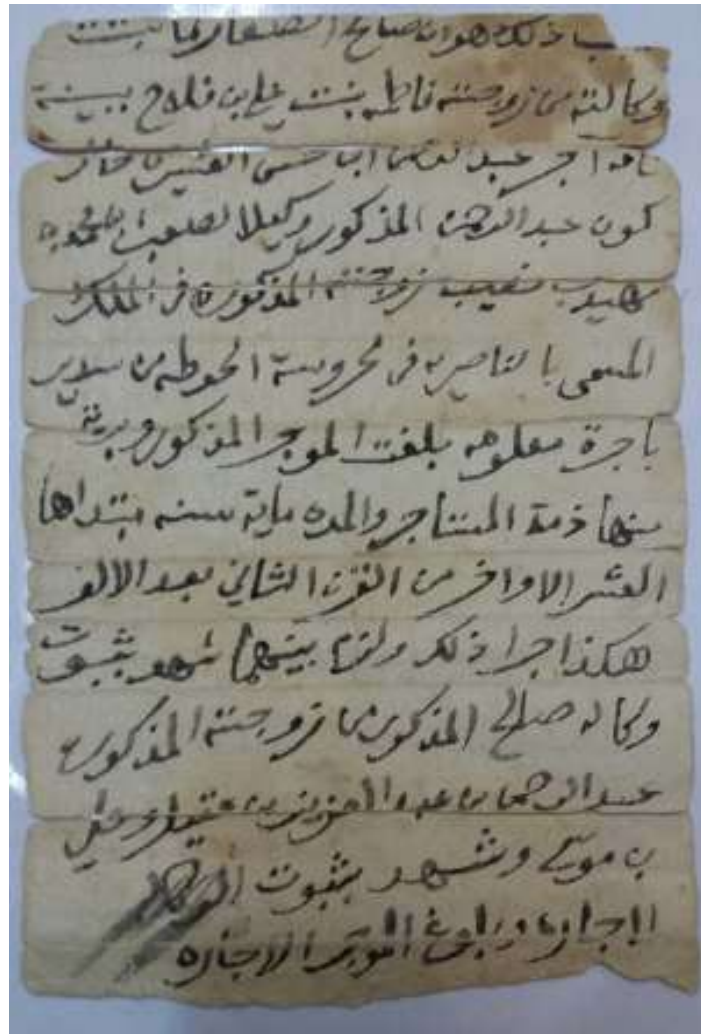 ذلك هو ان صالح
وكالته من زوجته فاطمه بنت علي بن فلاح ببينة
اجر عبد الرحمن ابا حسين
كون عبد الرحمن المذكور وكيلا
نصيب زوجته المذكوره في الملك
المسمى بالناصريه في محروسة الحوطه من سدير
باجرة معلومه بلغت الموجر المذكور وبرية
منها ذمة المستاجر والمده ماية سنه مبتداها
العشر الاواخر من القرن الثاني بعد الالف
هكذا جرا ذلك ولزم بينهما شهد بثبوت
وكاله صالح المذكور من زوجته المذكوره
عبد الرحمن بن عبد العزيز بن
بن موسى وشهد بثبوت
الاجاره وبلوغ الاجاره